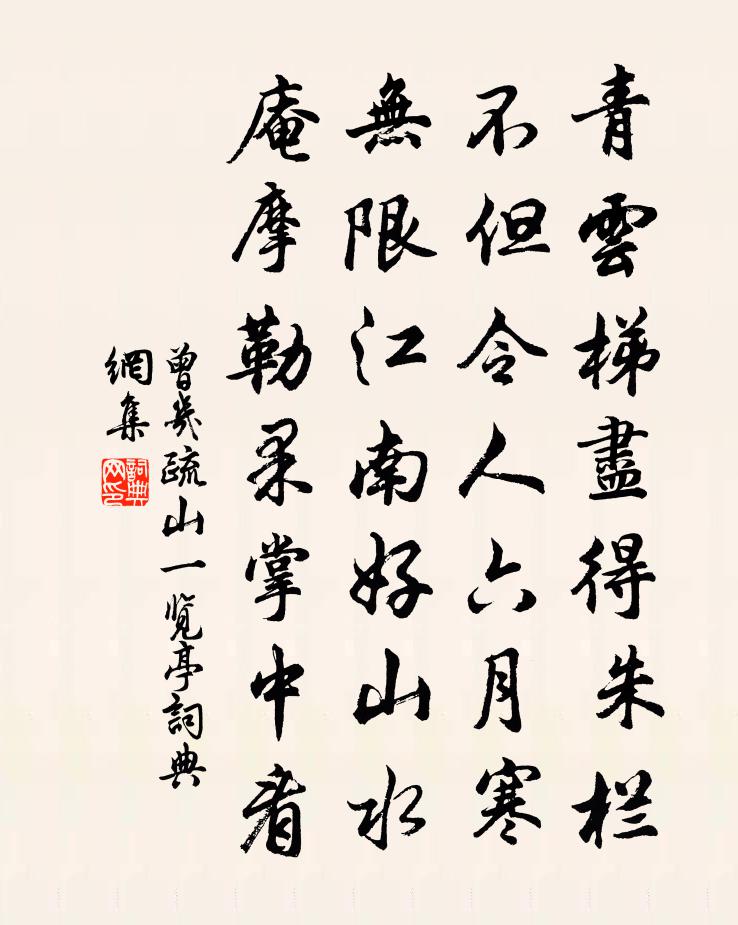 青雲梯盡得朱栏
不但令人六月寒
無限江南好山水
庵摩勒果掌中看
曾幾疏山一览亭詞典
網集
詞典
网印